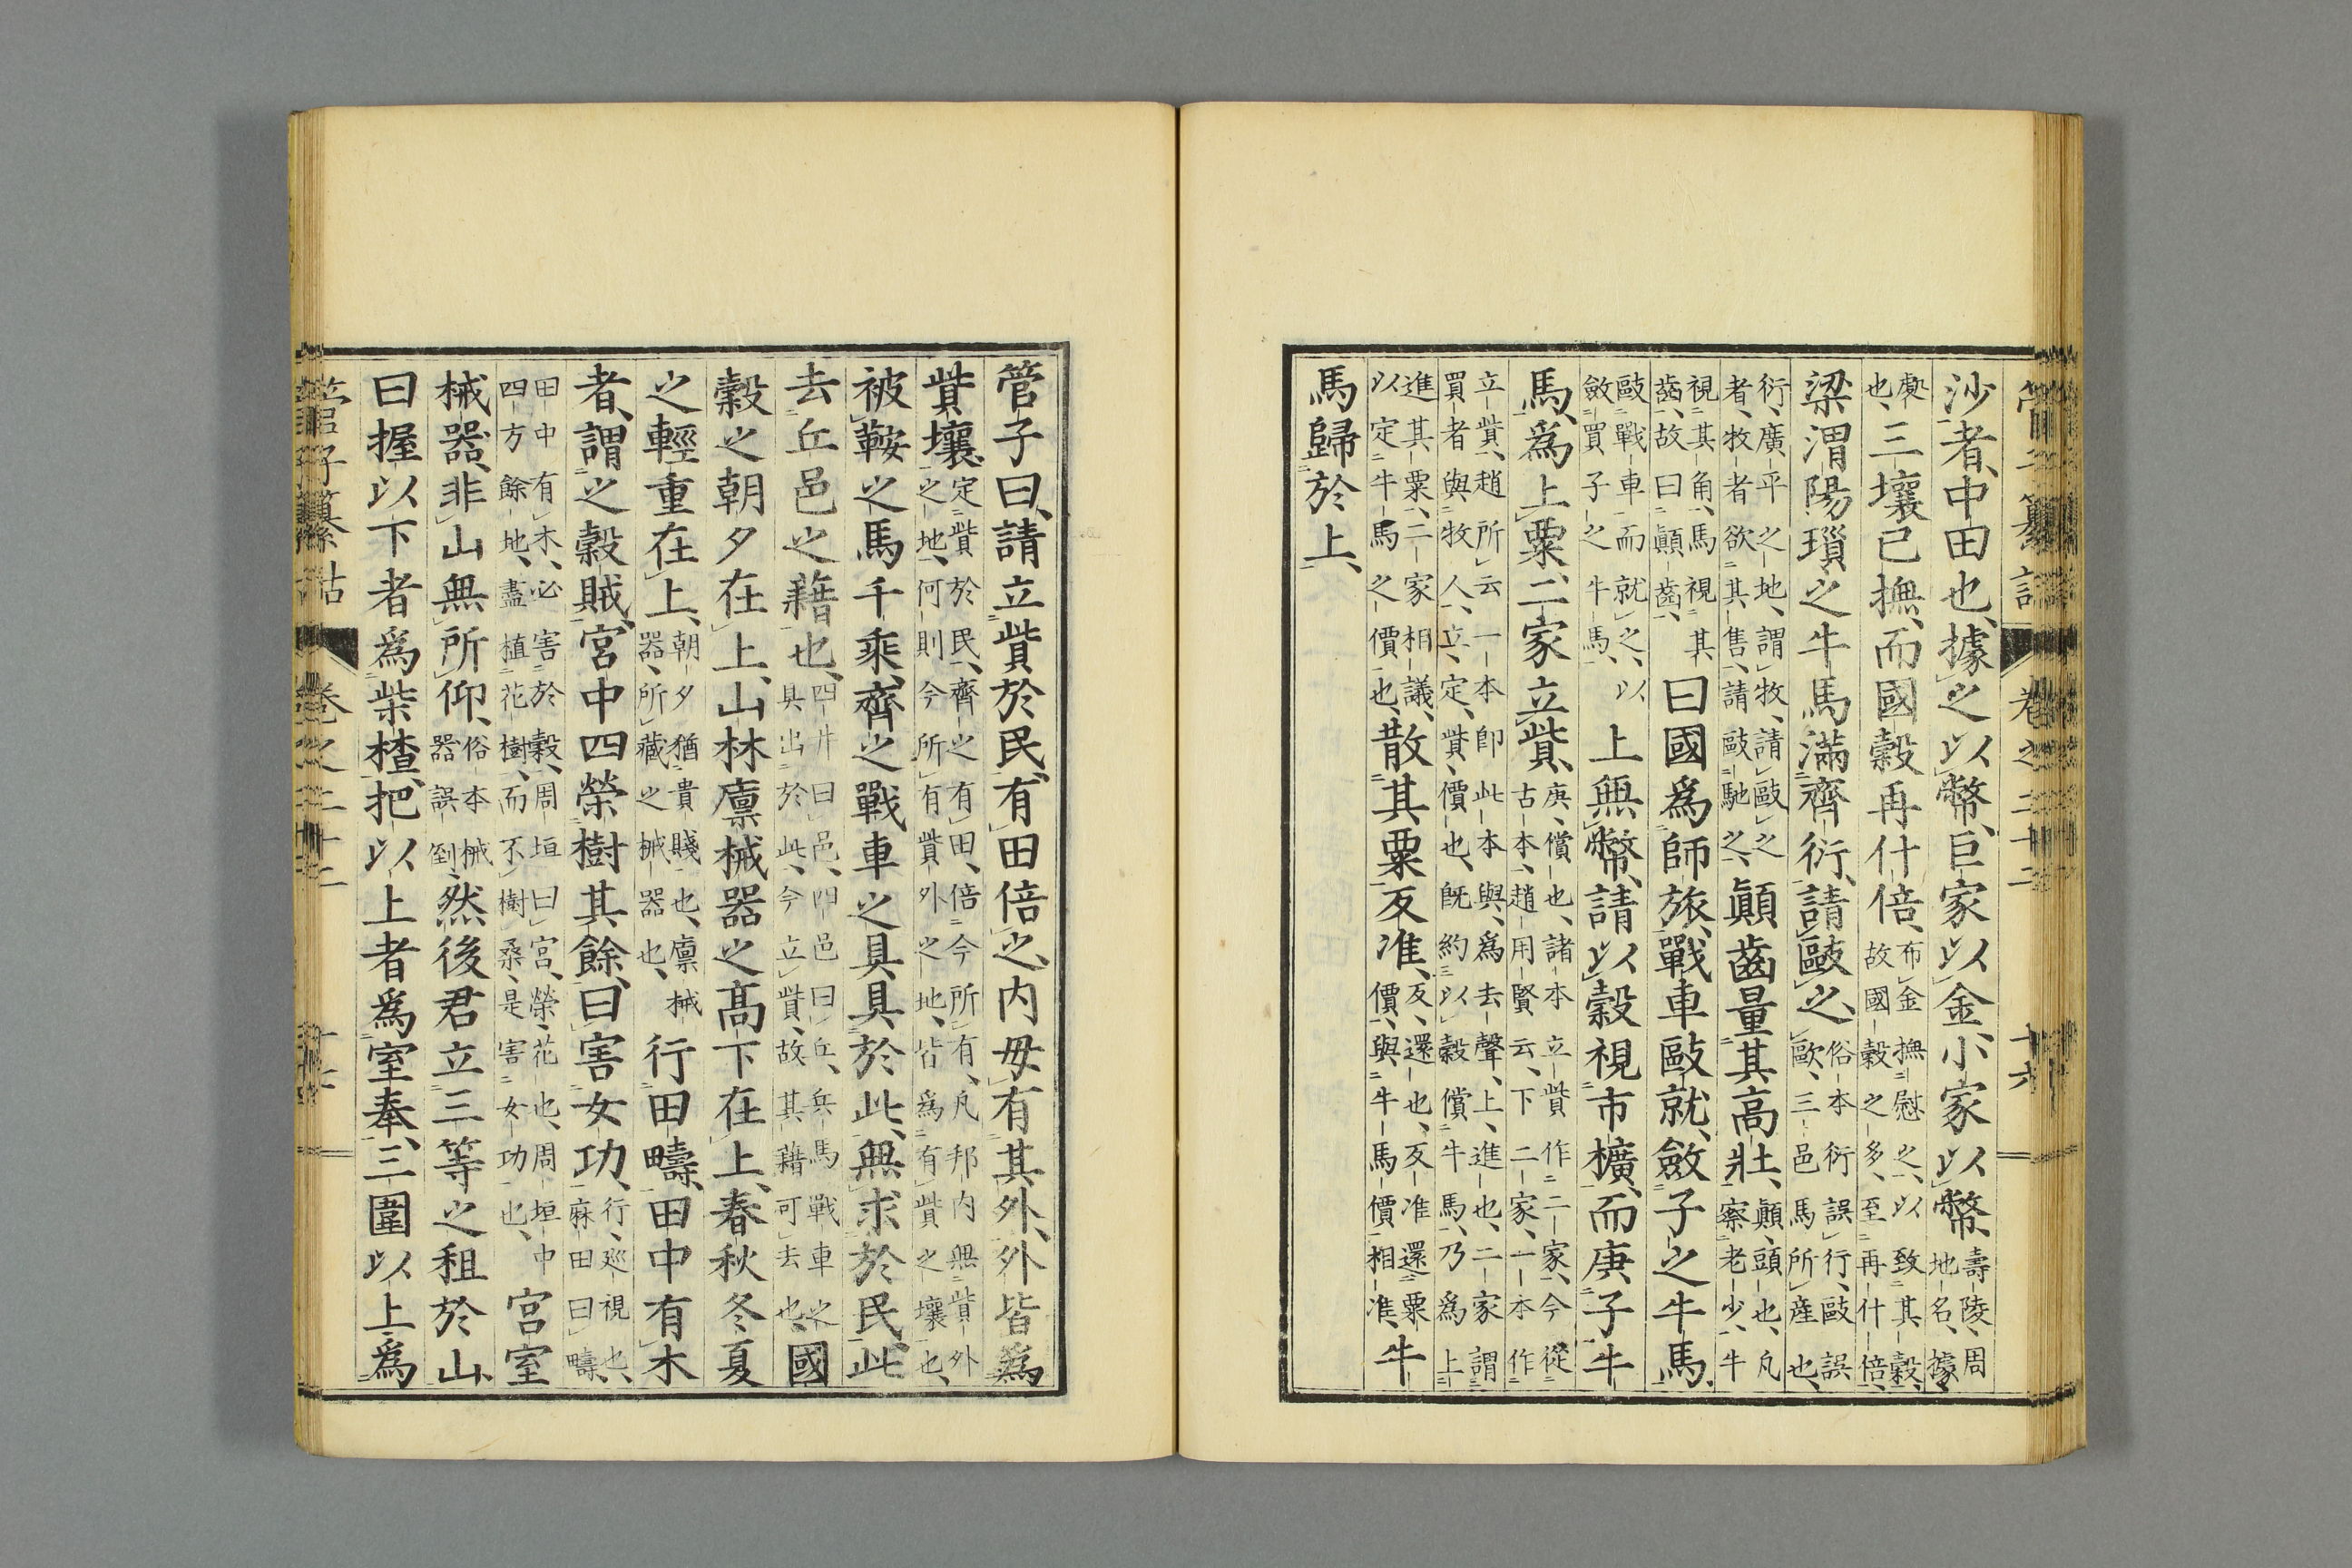 管子纂詁 卷之二十二 十六
沙者、中田也、據之以幣、巨家以金、小家以幣、壽陵、周地名、據、
處也、三壤已撫、而國穀再什倍、布金撫慰之、以致其穀、故國穀之多、至再什倍、
梁渭陽瑣之牛馬滿齊衍、請敺之、俗本衍誤行、敺誤歐、三邑馬所産也、
衍、廣平之地、謂牧、請敺之者、牧者欲其售、請敺馳之、顚齒量其高壯、顚、頭也、凡察老少、牛
視其角、馬視其齒、故曰顚齒、曰國爲師旅、戰車敺就、斂子之牛馬、
敺戰車而就之、以斂買子之牛馬、上無幣、請以穀視市櫎、而庚子牛
馬、爲上粟、二家立貲、庚、償也、諸本立貲作二家、今從古本、趙用賢云、下二家、一本作
立貲、趙所云一本卽此本與、爲去聲、上、進也、二家謂買者與牧人、立、定、貲、價也、旣約以穀償牛馬、乃爲上
進其粟、二家相議、以定牛馬之價也、散其粟反准、反、還也、反准還粟價、與牛馬價相准、牛
馬歸於上、
管子曰、請立貲於民、有田倍之、内毋有其外、外皆爲
貲壤、定貲於民、齊之有田、倍今所有、凡邦内無貲外之地、何則今所有貲外之地、皆爲有貲之壤也、
被鞍之馬千乘、齊之戰車之具、具於此、無求於民、此
去丘邑之藉也、四井曰邑、四邑曰丘、兵馬戰車之具出於此、今立貲、故其藉可去也、國
穀之朝夕在上、山林廩械器之高下在上、春秋冬夏
之輕重在上、朝夕猶貴賤也、廩械器、所藏之械器也、行田疇、田中有木
者、謂之穀賊、宮中四榮樹其餘、曰害女功、行、巡視也、麻田曰疇、
田中有木、必害於穀、周垣曰宮、榮、花也、周垣中四方餘地、盡植花樹、而不樹桑、是害女功也、宮室
械器、非山無所仰、俗本械器誤倒、然後君立三等之租於山、
曰握以下者爲柴楂、把以上者爲室奉、三圍以上爲
管子纂詁 卷之二十二